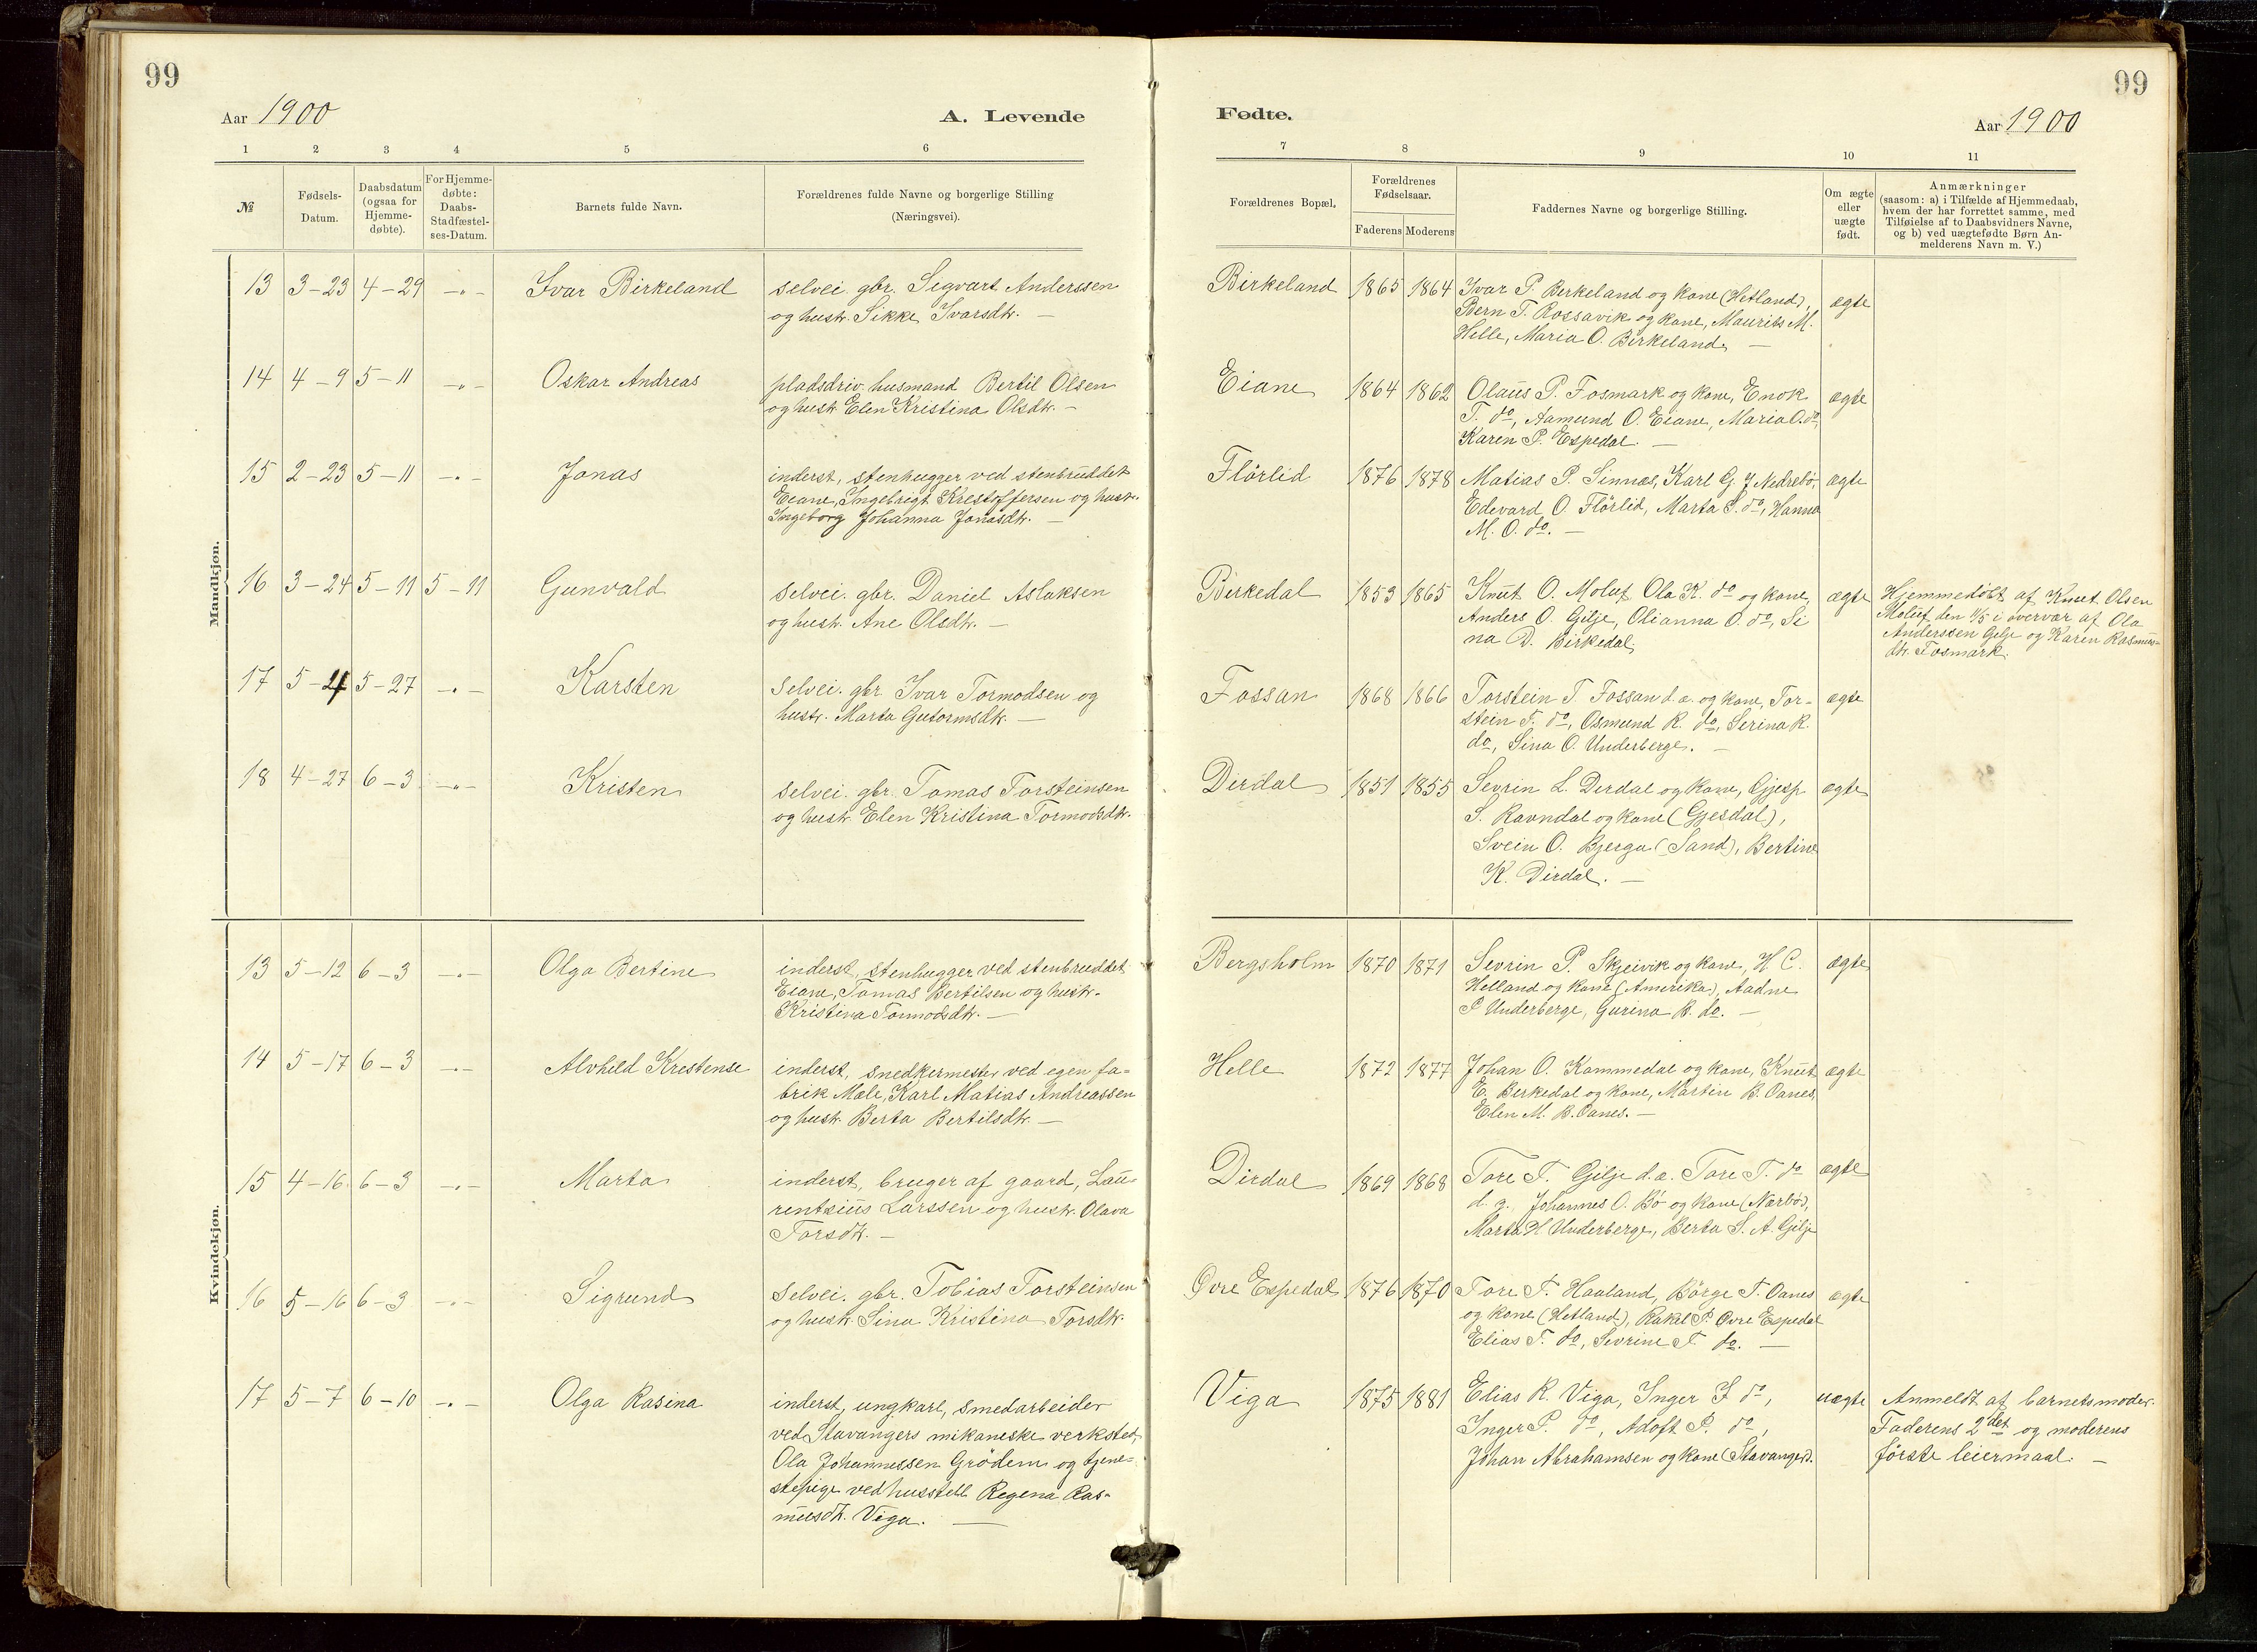 99
99
Aar 1900
A. Levende
Fødte.
Aar 1900
1 2 3 4 5 6
7 8 9 10 11
№
Fødsels-
Datum.
Daabsdatum
(ogsaa for
Hjemme-
døbte).
For Hjemme-
døbte:
Daabs-
Stadfæstel-
ses-Datum.
Barnets fulde Navn.
Forældrenes fulde Navne og borgerlige Stilling
(Næringsvei).
Forældrenes Bopæl.
Forældrenes
Fødselsaar.
Faderens Moderens
Faddernes Navne og borgerlige Stilling.
Om ægte
eller
uægte
født.
Anmærkninger
(saasom: a) i Tilfælde af Hjemmedaab,
hvem der har forrettet samme, med
Tilføielse af to Daabsvidners Navne,
og b) ved uægtefødte Børn An-
melderens Navn m. V.)
Mandkjøn.
13 3-23 4-29 -"- Ivar Birkeland
selvei. gbr. Sigvart Anderssen
og hustr. Sikke Ivarsdtr. -
Birkeland 1865 1864
Ivar P. Birkeland og kone (Hetland),
Bern T. Rossavik og kone, Maurits M.
Helle, Maria O. Birkeland. -
ægte
14 4-9 5-11 -"- Oskar Andreas
pladsdriv. husmand Bertil Olsen
og hustr. Elen Kristina Olsdtr. -
Eiane 1864 1862
Olaus P. Fosmark og kone, Enok
T. do, Aamund O. Eiane, Maria O. do,
Karen P. Espedal. -
ægte
15 2-23 5-11 -"- Jonas
inderst, stenhugger ved stenbruddet
Eiane, Ingebrigt Kristoffersen og hustr.
Ingeborg Johanna Jonasdtr. -
Flörlid 1876 1878
Matias P. Sinnes, Karl G. J. Nedrebö,
Edevard O. Flörlid, Marta S. do, Hanna
M. O. do. -
ægte
16 3-24 5-11 5-11 Gunvald
selvei. gbr. Daniel Aslaksen
og hustr. Ane Olsdtr. -
Birkedal 1853 1865
Knut O. Moluf, Ola K. do og kone,
Anders O. Gilje, Olianna O. do, Si
na D. Birkedal.
ægte
Hjemmedöbt af Knut Olsen
Moluf den 11/5 i overvær af Ola
Anderssen Gilje og Karen Rasmus-
dtr. Fosmark.
17 5-4 5-27 -"- Karsten
Selvei. gbr. Ivar Tormodsen og
hustr. Marta Gutormsdtr. -
Fossan 1868 1866
Torstein T. Fossan d. æ. og kone, Tor-
stein T. do, Osmund R. do, Serina R.
do, Sina O. Underberge. -
ægte
18 4-27 6-3 -"- Kristen
selvei. gbr. Tomas Torsteinsen
og hustr. Elen Kristina Tormodsdtr.
Dirdal 1851 1855
Sevrin L. Dirdal og kone, Gjesp
S. Ravndal og kone (Gjesdal),
Svein O. Bjerga (Sand), Bertine
K. Dirdal. -
ægte
Kvindekjøn.
13 5-12 6-3 -"- Olga Bertine
inderst, stenhugger ved stenbruddet
Eiane, Tomas Bertilsen og hustr.
Kristina Tormodsdtr. -
Bergsholm 1870 1871
Sevrin P. Skjeivik og kone, H. C.
Helland og kone (Amerika), Aadne
P. Underberge, Gurina B. do. -
ægte
14 5-17 6-3 -"- Alvhild Kristense
inderst, snedkermester ved egen fa-
brik Mæle, Karl Matias Andreassen
og hustr. Berta Bertilsdtr. -
Helle 1872 1877
Johan O. Kommedal og kone, Knut
E. Birkedal og kone, Martin B. Oanes,
Elen M. B. Oanes. -
ægte
15 4-16 6-3 -"- Marta
inderst, bruger af gaard, Lau-
rentsius Larssen og hustr. Olava
Torsdtr. -
Dirdal 1869 1868
Tore T. Gilje d. æ. Tore T. do
d. y. Johannes O. Bö og kone (Nærbö),
Marta H. Underberge, Berta S. A. Gilje
ægte
16 5-16 6-3 -"- Sigrund
Selvei. gbr. Tobias Torsteinsen
og hustr. Sina Kristina Torsdtr.
Øvre Espedal 1876 1870
Tore T. Haaland, Börge T. Oanes
og kone (Hetland), Rakel P. Øvre Espedal
Elias T. do, Sevrine T. do. -
ægte
17 5-7 6-10 -"- Olga Rasina
inderst, ungkarl, smedarbeider
ved Stavangers mikaneske verksted,
Ola Johannessen Grödem og tjene-
stepige ved husstell Regena Ras-
musdtr. Viga. -
Viga 1875 1881
Elias R. Viga, Inger J. do,
Inger P. do, Adolf P. do,
Johan Abrahamsen og kone (Stavanger).
uægte
Anmeldt af barnets moder.
Faderens 2det og moderens
förste leiermaal. -